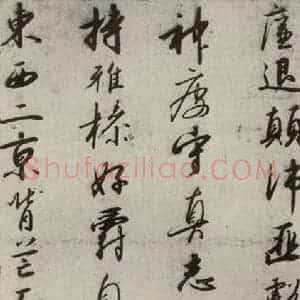 廉退顛沛匪虧
神疲守真志
持雅操好爵自
東西二京背芒
Shufaziliao.com